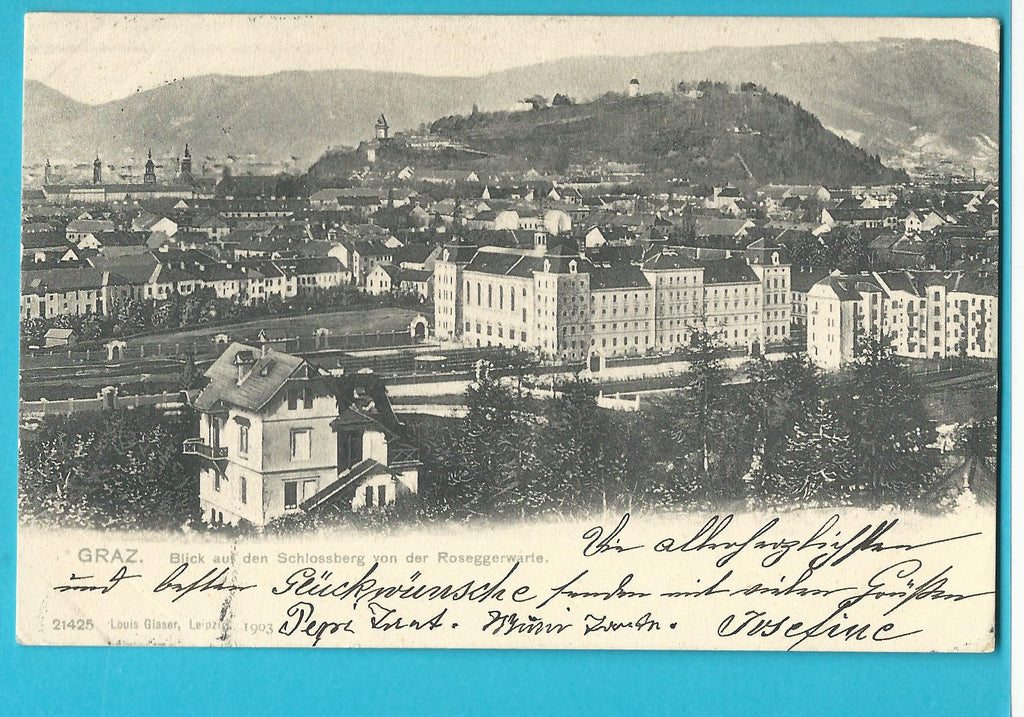 GRAZ. Blick auf den Schlossberg von der Roseggerwarte.
Die allerherzlichsten
und besten Glückwünsche senden mit vielen Grüßen
21425 Louis Glaser, Leipzig. 1903
Pepi Josefine